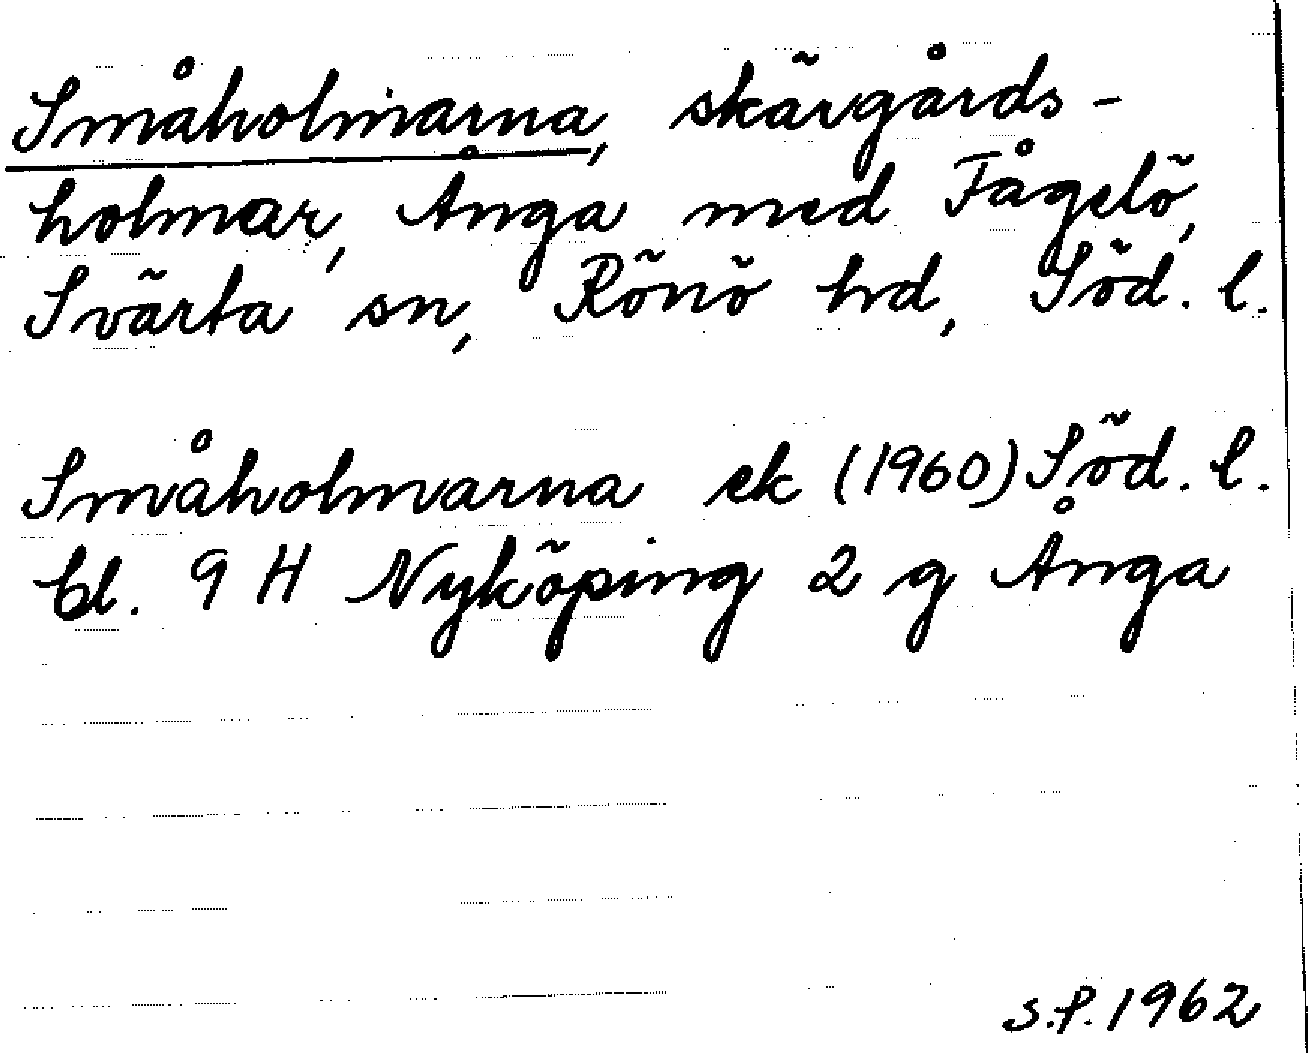 Småholmarna, skärgårds-
holmar, Ånga med Fågelö,
Svärta sn, Rönö hd, Söd. l.
Småholmarna ek (1960) Söd. l.
bl. 9 H Nyköping 2 g Ånga
S.P. 1962